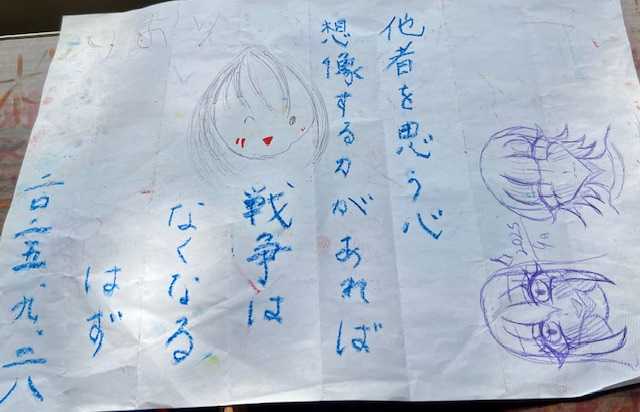 他者を思う心
想像する力があれば
戦争は
なくなる
はず
二〇二五、九、二八
2025